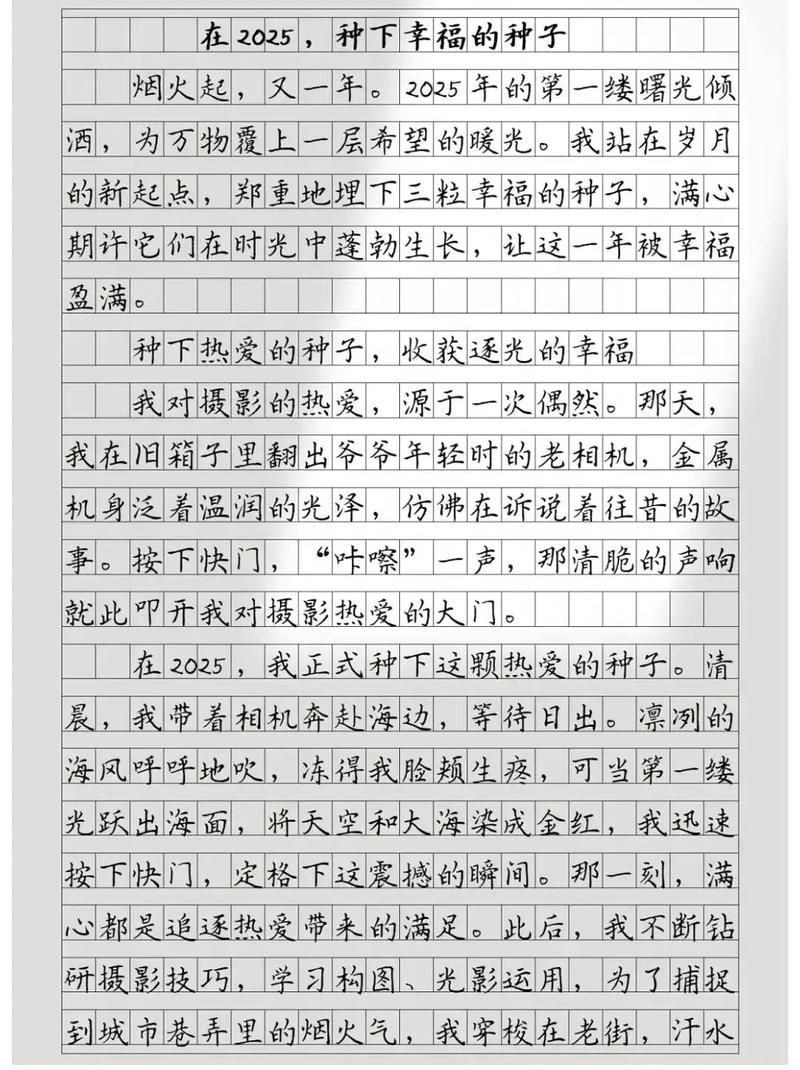 在2025，种下幸福的种子
烟火起，又一年。2025年的第一缕曙光倾
洒，为万物覆上一层希望的暖光。我站在岁月
的新起点，郑重地埋下三粒幸福的种子，满心
期许它们在时光中蓬勃生长，让这一年被幸福
盈满。
种下热爱的种子，收获逐光的幸福
我对摄影的热爱，源于一次偶然。那天，
我在旧箱子里翻出爷爷年轻时的老相机，金属
机身泛着温润的光泽，仿佛在诉说着往昔的故
事。按下快门，“咔嚓”一声，那清脆的声响
就此叩开我对摄影热爱的大门。
在2025，我正式种下这颗热爱的种子。清
晨，我带着相机奔赴海边，等待日出。凛冽的
海风呼呼地吹，冻得我脸颊生疼，可当第一缕
光跃出海面，将天空和大海染成金红，我迅速
按下快门，定格下这震撼的瞬间。那一刻，满
心都是追逐热爱带来的满足。此后，我不断钻
研摄影技巧，学习构图、光影运用，为了捕捉
到城市巷弄里的烟火气，我穿梭在老街，汗水